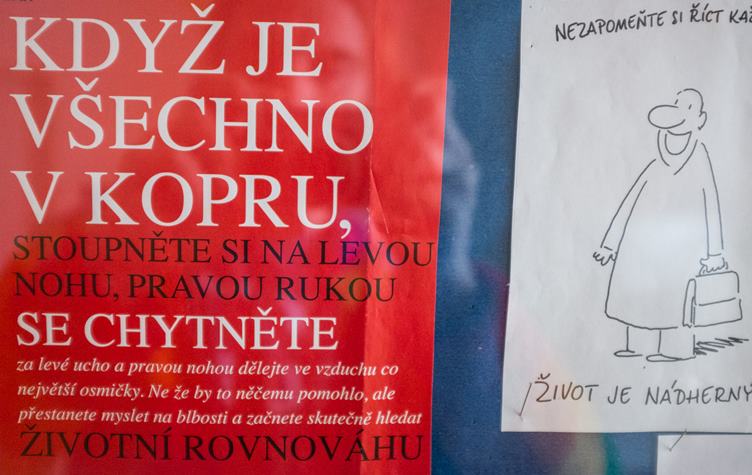 KDYŽ JE
VŠECHNO
V KOPRU,
STOUPNĚTE SI NA LEVOU
NOHU, PRAVOU RUKOU
SE CHYTNĚTE
za levé ucho a pravou nohou dělejte ve vzduchu co
největší osmičky. Ne že by to něčemu pomohlo, ale
přestanete myslet na blbosti a začnete skutečně hledat
ŽIVOTNÍ ROVNOVÁHU
NEZAPOMEŇTE SI ŘÍCT
ŽIVOT JE NÁDHERNÝ